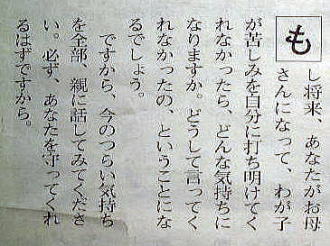 もし将来、あなたがお母
さんになって、わが子
が苦しみを自分に打ち明けてく
れなかったら、どんな気持ちに
なりますか。どうして言ってく
れなかったの、ということにな
るでしょう。
　ですから、今のつらい気持ち
を全部、親に話してみてくださ
い。必ず、あなたを守ってくれ
るはずですから。